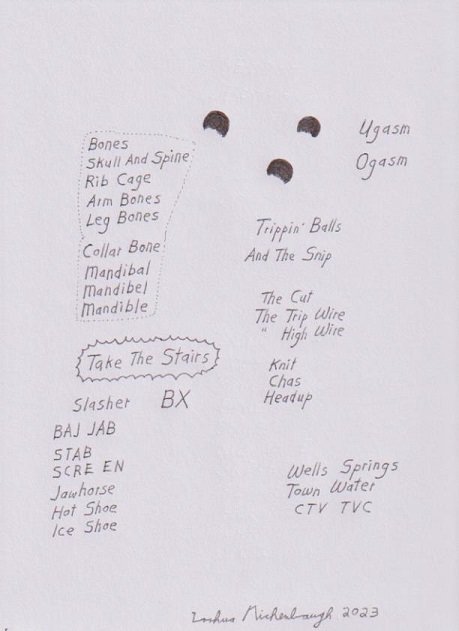 Ugasm
Ogasm
Bones
Skull And Spine
Rib Cage
Arm Bones
Leg Bones
Collar Bone
Mandibal
Mandibel
Mandible
Trippin' Balls
And The Snip
The Cut
The Trip Wire
" High Wire
Knit
Chas
Headup
Take The Stairs
Slasher BX
BAJ JAB
STAB
SCRE EN
Jawhorse
Hot Shoe
Ice Shoe
Wells Springs
Town Water
CTV TVC
Joshua 2023